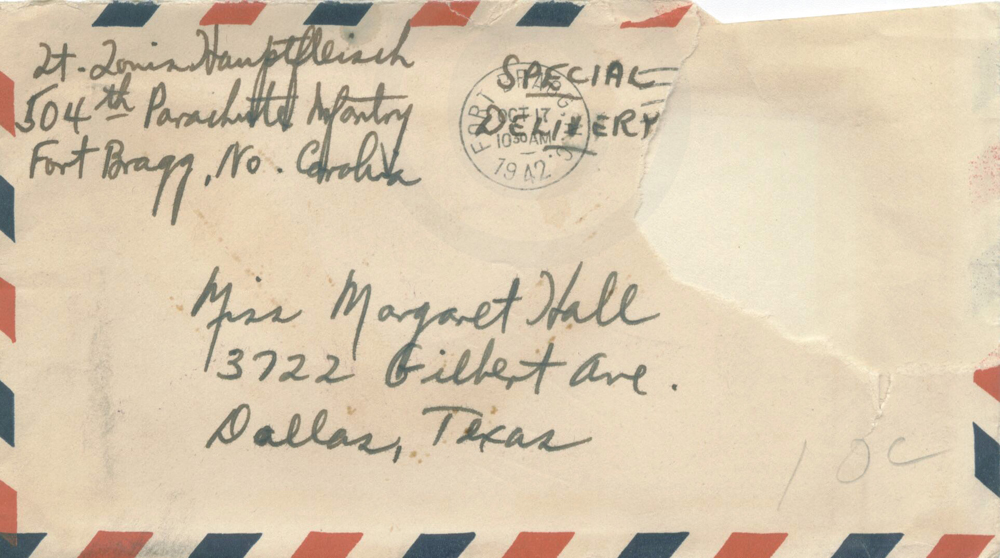 Lt. Louis Hauptfleisch
504th Parachute Infantry
Fort Bragg, No. Carolina
SPECIAL
DELIVERY
FORT BRAGG N.C.
OCT 17
10 30 AM
1942
Miss Margaret Hall
3722 Gilbert Ave.
Dallas, Texas
10c